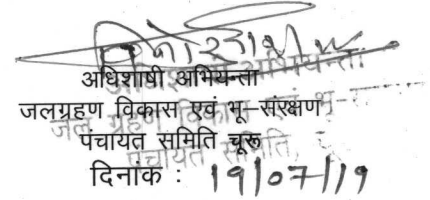 अधिशाषी अभियन्ता
जलग्रहण विकास एवं भू-संरक्षण
पंचायत समिति चूरू
दिनांक : 19/07/19